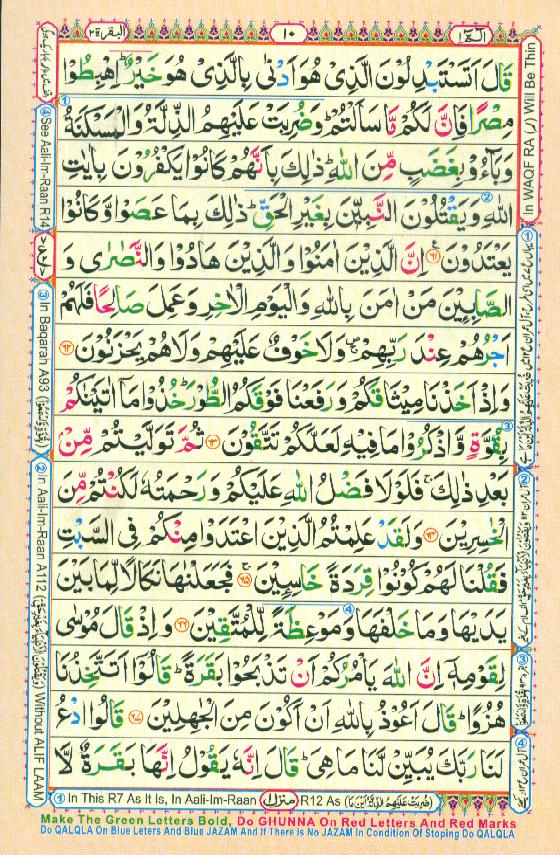 البقرة ٢
١٠
الٓمّٓ ١
قَالَ اَتَسْتَبْدِلُوْنَ الَّذِیْ هُوَ اَدْنٰی بِالَّذِیْ هُوَ خَیْرٌ ؕ اِهْبِطُوْا
مِصْرًا فَاِنَّ لَكُمْ مَّا سَاَلْتُمْ ؕ وَضُرِبَتْ عَلَیْهِمُ الذِّلَّةُ وَالْمَسْكَنَةُ
وَبَآءُوْ بِغَضَبٍ مِّنَ اللّٰهِ ؕ ذٰلِكَ بِاَنَّهُمْ كَانُوْا یَكْفُرُوْنَ بِاٰیٰتِ
اللّٰهِ وَیَقْتُلُوْنَ النَّبِیّٖنَ بِغَیْرِ الْحَقِّ ؕ ذٰلِكَ بِمَا عَصَوْا وَّكَانُوْا
یَعْتَدُوْنَ ﴿٦١﴾ اِنَّ الَّذِیْنَ اٰمَنُوْا وَالَّذِیْنَ هَادُوْا وَالنَّصٰرٰی وَ
الصّٰبِـِٕیْنَ مَنْ اٰمَنَ بِاللّٰهِ وَالْیَوْمِ الْاٰخِرِ وَعَمِلَ صَالِحًا فَلَهُمْ
اَجْرُهُمْ عِنْدَ رَبِّهِمْ ۪ۚ وَلَا خَوْفٌ عَلَیْهِمْ وَلَا هُمْ یَحْزَنُوْنَ ﴿٦٢﴾
وَاِذْ اَخَذْنَا مِیْثَاقَكُمْ وَرَفَعْنَا فَوْقَكُمُ الطُّوْرَ ؕ خُذُوْا مَاۤ اٰتَیْنٰكُمْ
بِقُوَّةٍ وَّاذْكُرُوْا مَا فِیْهِ لَعَلَّكُمْ تَتَّقُوْنَ ﴿٦٣﴾ ثُمَّ تَوَلَّیْتُمْ مِّنْۢ
بَعْدِ ذٰلِكَ ۚ فَلَوْلَا فَضْلُ اللّٰهِ عَلَیْكُمْ وَرَحْمَتُهٗ لَكُنْتُمْ مِّنَ
الْخٰسِرِیْنَ ﴿٦٤﴾ وَلَقَدْ عَلِمْتُمُ الَّذِیْنَ اعْتَدَوْا مِنْكُمْ فِی السَّبْتِ
فَقُلْنَا لَهُمْ كُوْنُوْا قِرَدَةً خٰسِـِٕیْنَ ﴿٦٥﴾ فَجَعَلْنٰهَا نَكَالًا لِّمَا بَیْنَ
یَدَیْهَا وَمَا خَلْفَهَا وَمَوْعِظَةً لِّلْمُتَّقِیْنَ ﴿٦٦﴾ وَاِذْ قَالَ مُوْسٰی
لِقَوْمِهٖۤ اِنَّ اللّٰهَ یَاْمُرُكُمْ اَنْ تَذْبَحُوْا بَقَرَةً ؕ قَالُوْۤا اَتَتَّخِذُنَا
هُزُوًا ؕ قَالَ اَعُوْذُ بِاللّٰهِ اَنْ اَكُوْنَ مِنَ الْجٰهِلِیْنَ ﴿٦٧﴾ قَالُوا ادْعُ
لَنَا رَبَّكَ یُبَیِّنْ لَّنَا مَا هِیَ ؕ قَالَ اِنَّهٗ یَقُوْلُ اِنَّهَا بَقَرَةٌ لَّا
In WAQF RA (ر) Will Be Thin
④ See Aali-Im-Raan R14
③ In Baqarah A93
② In Aali-Im-Raan A112 Without ALIF LAAM
① In This R7 As It Is, In Aali-Im-Raan R12 As (ضُرِبَتْ عَلَیْهِمُ الذِّلَّةُ اَیْنَ مَا)
منزل ١
Make The Green Letters Bold, Do GHUNNA On Red Letters And Red Marks
Do QALQLA On Blue Leters And Blue JAZAM And If There Is No JAZAM In Condition Of Stoping Do QALQLA